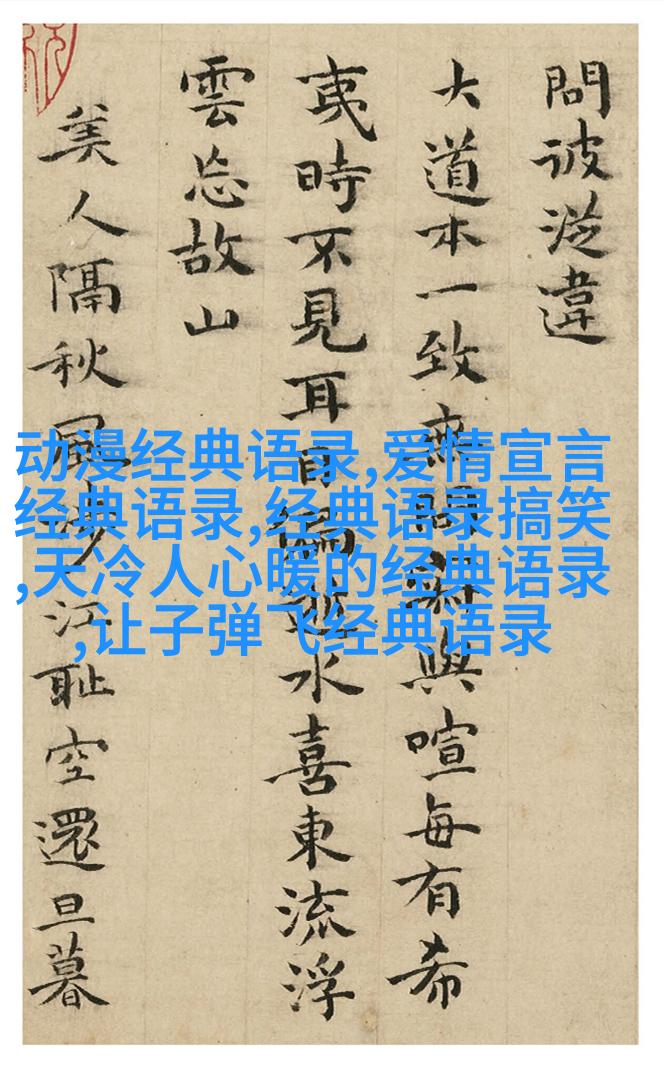 問彼從違
大道本一致無問與喧每有希
夷時不見耳目水喜東流浮
雲忘故山
美人隔秋風涉江恥空還旦暮
动漫经典语录,爱情宣言
经典语录,经典语录搞笑
,天冷人心暖的经典语录
,让子弹飞经典语录